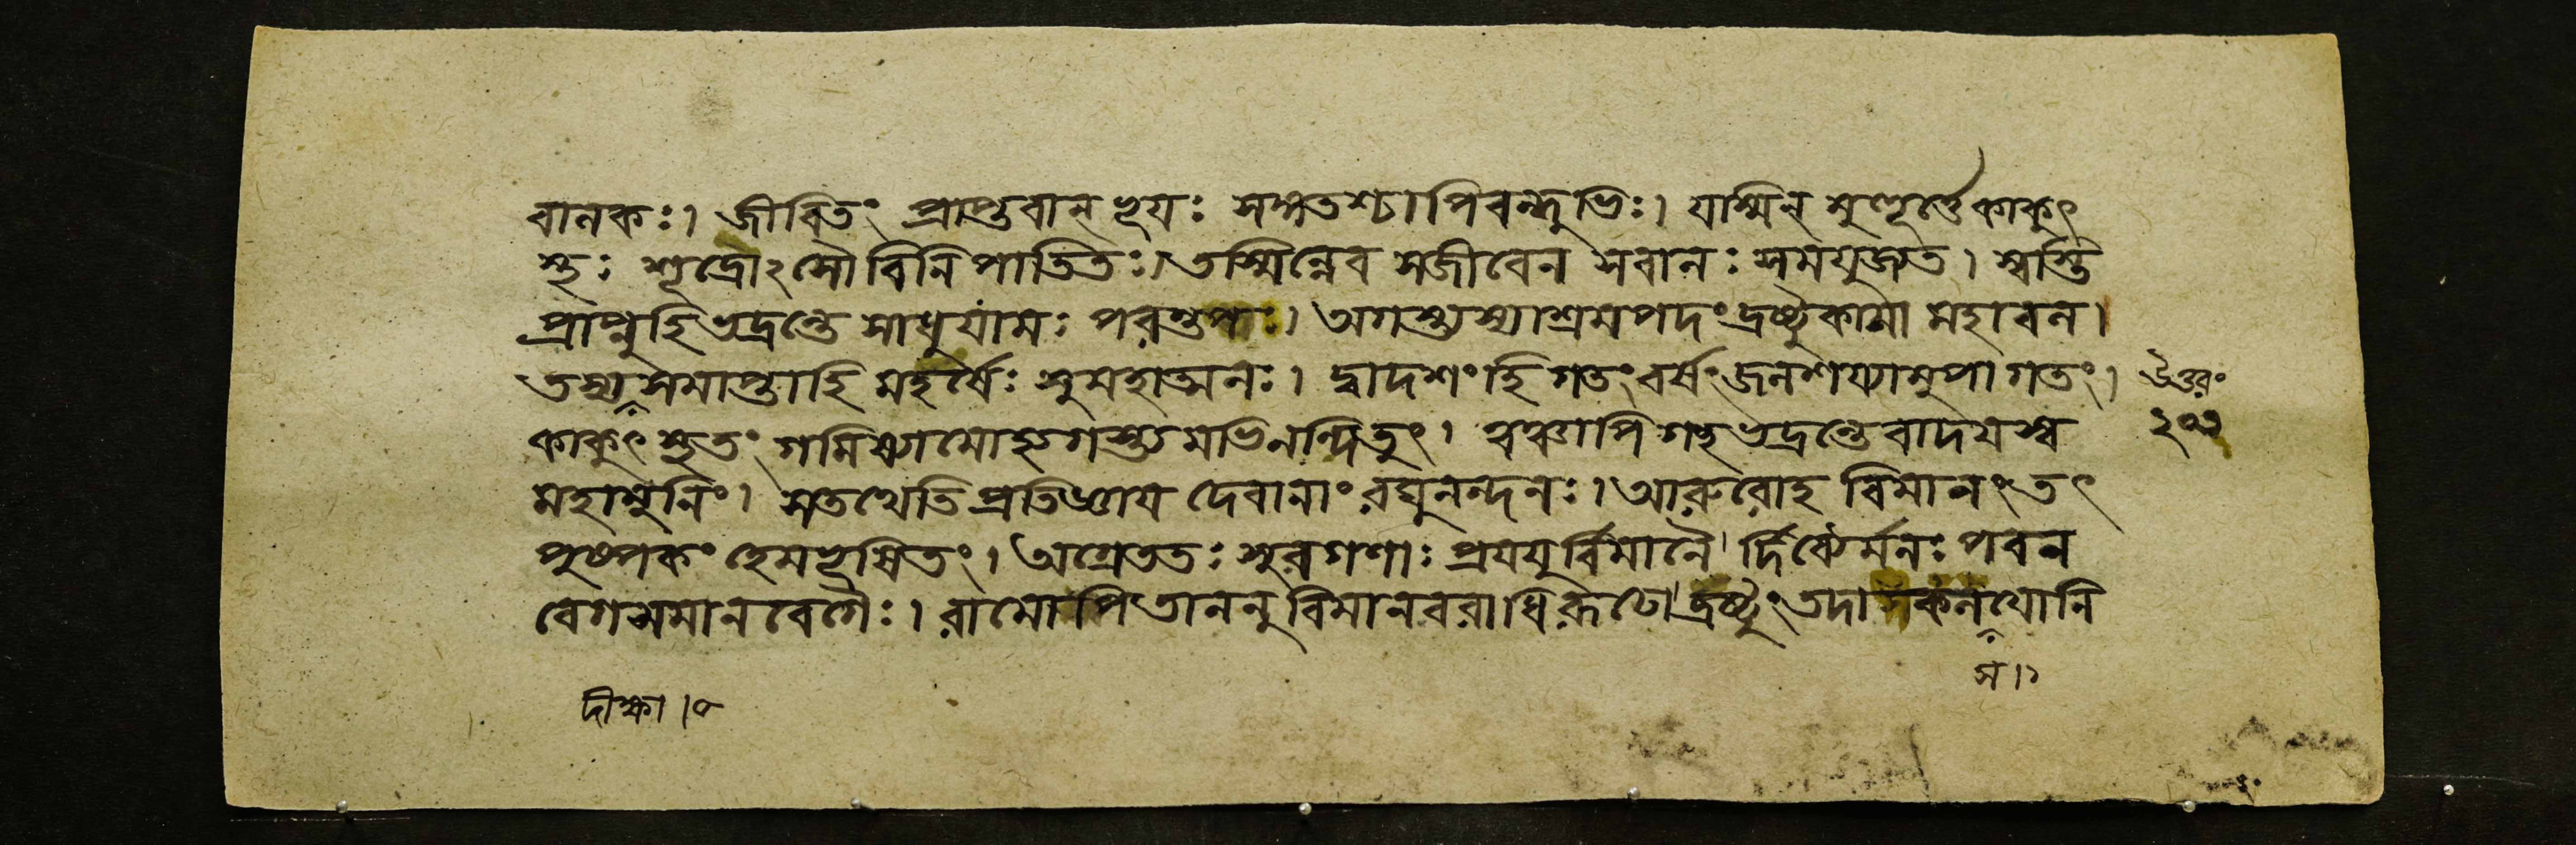 বানকঃ। জীবিতং প্রাপ্তবান্ ভূয়ঃ সঙ্গতশ্চাপিবন্দুভিঃ। যাস্মিন্ মুহূর্ত্তেকাকুৎ
স্থঃ শূদ্রোঽসৌবিনিপাতিতঃ। তস্মিন্নেব সজীবেন সবানঃ সমযুজ্যত। স্বস্তি
প্রাপ্নুহিভদ্রন্তে সাধুযামঃ পরন্তপঃ। অগস্ত্যস্যাশ্রমপদং দ্রষ্টুকামা মহাবন।
তস্য সমাপ্তাহি মহর্ষেঃ সুমহাত্মনঃ। দ্বাদশংহি গতংবর্ষংজনশয্যামুপাগতং।
উত্তর॰
কাকুৎস্থতং গমিষ্যামোহ্যগস্ত্যমভিনন্দিতুং। ত্বঞ্চাপি গচ্ছভদ্রন্তেবাদযস্ব
মহামুনিং। সতথেতিপ্রতিজ্ঞায দেবানাং রঘুনন্দনঃ। আরুরোহ বিমানংতৎ
পুষ্পকং হেমভূষিতং। অগ্রেততঃ সুরগণাঃ প্রযযুর্বিমানৈ র্দিব্যৈর্মনঃ পবন
বেগসমানবেগৈঃ। রামোপিতাননুবিমানবরাধিরূঢো দ্রষ্টুংতদা যোনি
স।১
দীক্ষা।৫